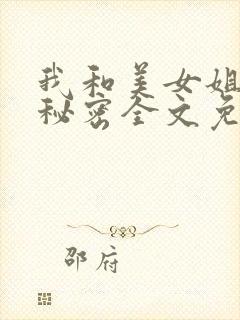 我和美女姐
秘密全文免
邵府